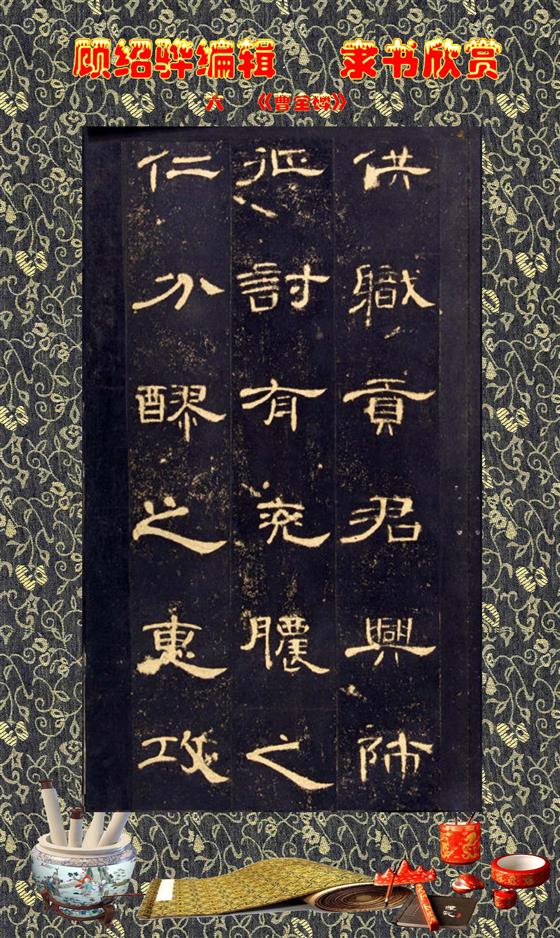 顾绍骅编辑 隶书欣赏
六 《曹全碑》
供職貢君興師
征討有兖膿之
仁分醪之惠攻